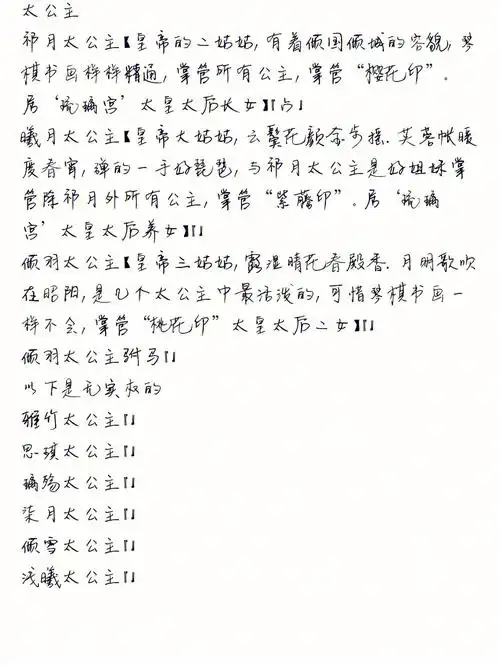 太公主
祁月太公主【皇帝的二姑姑,有着倾国倾城的容貌,琴
棋书画样样精通,掌管所有公主,掌管“樱花印”.
居‘琉璃宫’太皇太后长女】【占】
曦月太公主【皇帝大姑姑,云鬓花颜金步摇.芙蓉帐暖
度春宵,弹的一手好琵琶,与祁月太公主是好姐妹掌
管除祁月外所有公主,掌管“紫藤印”.居‘琉璃
宫’太皇太后养女】【】
倾羽太公主【皇帝三姑姑,露湿晴花春殿香.月明歌吹
在昭阳,是几个太公主中最活泼的,可惜琴棋书画一
样不会,掌管“桃花印”太皇太后二女】【】
倾羽太公主驸马【】
以下是无实权的
雅竹太公主【】
思琪太公主【】
璃殇太公主【】
柒月太公主【】
倾雪太公主【】
浅曦太公主【】